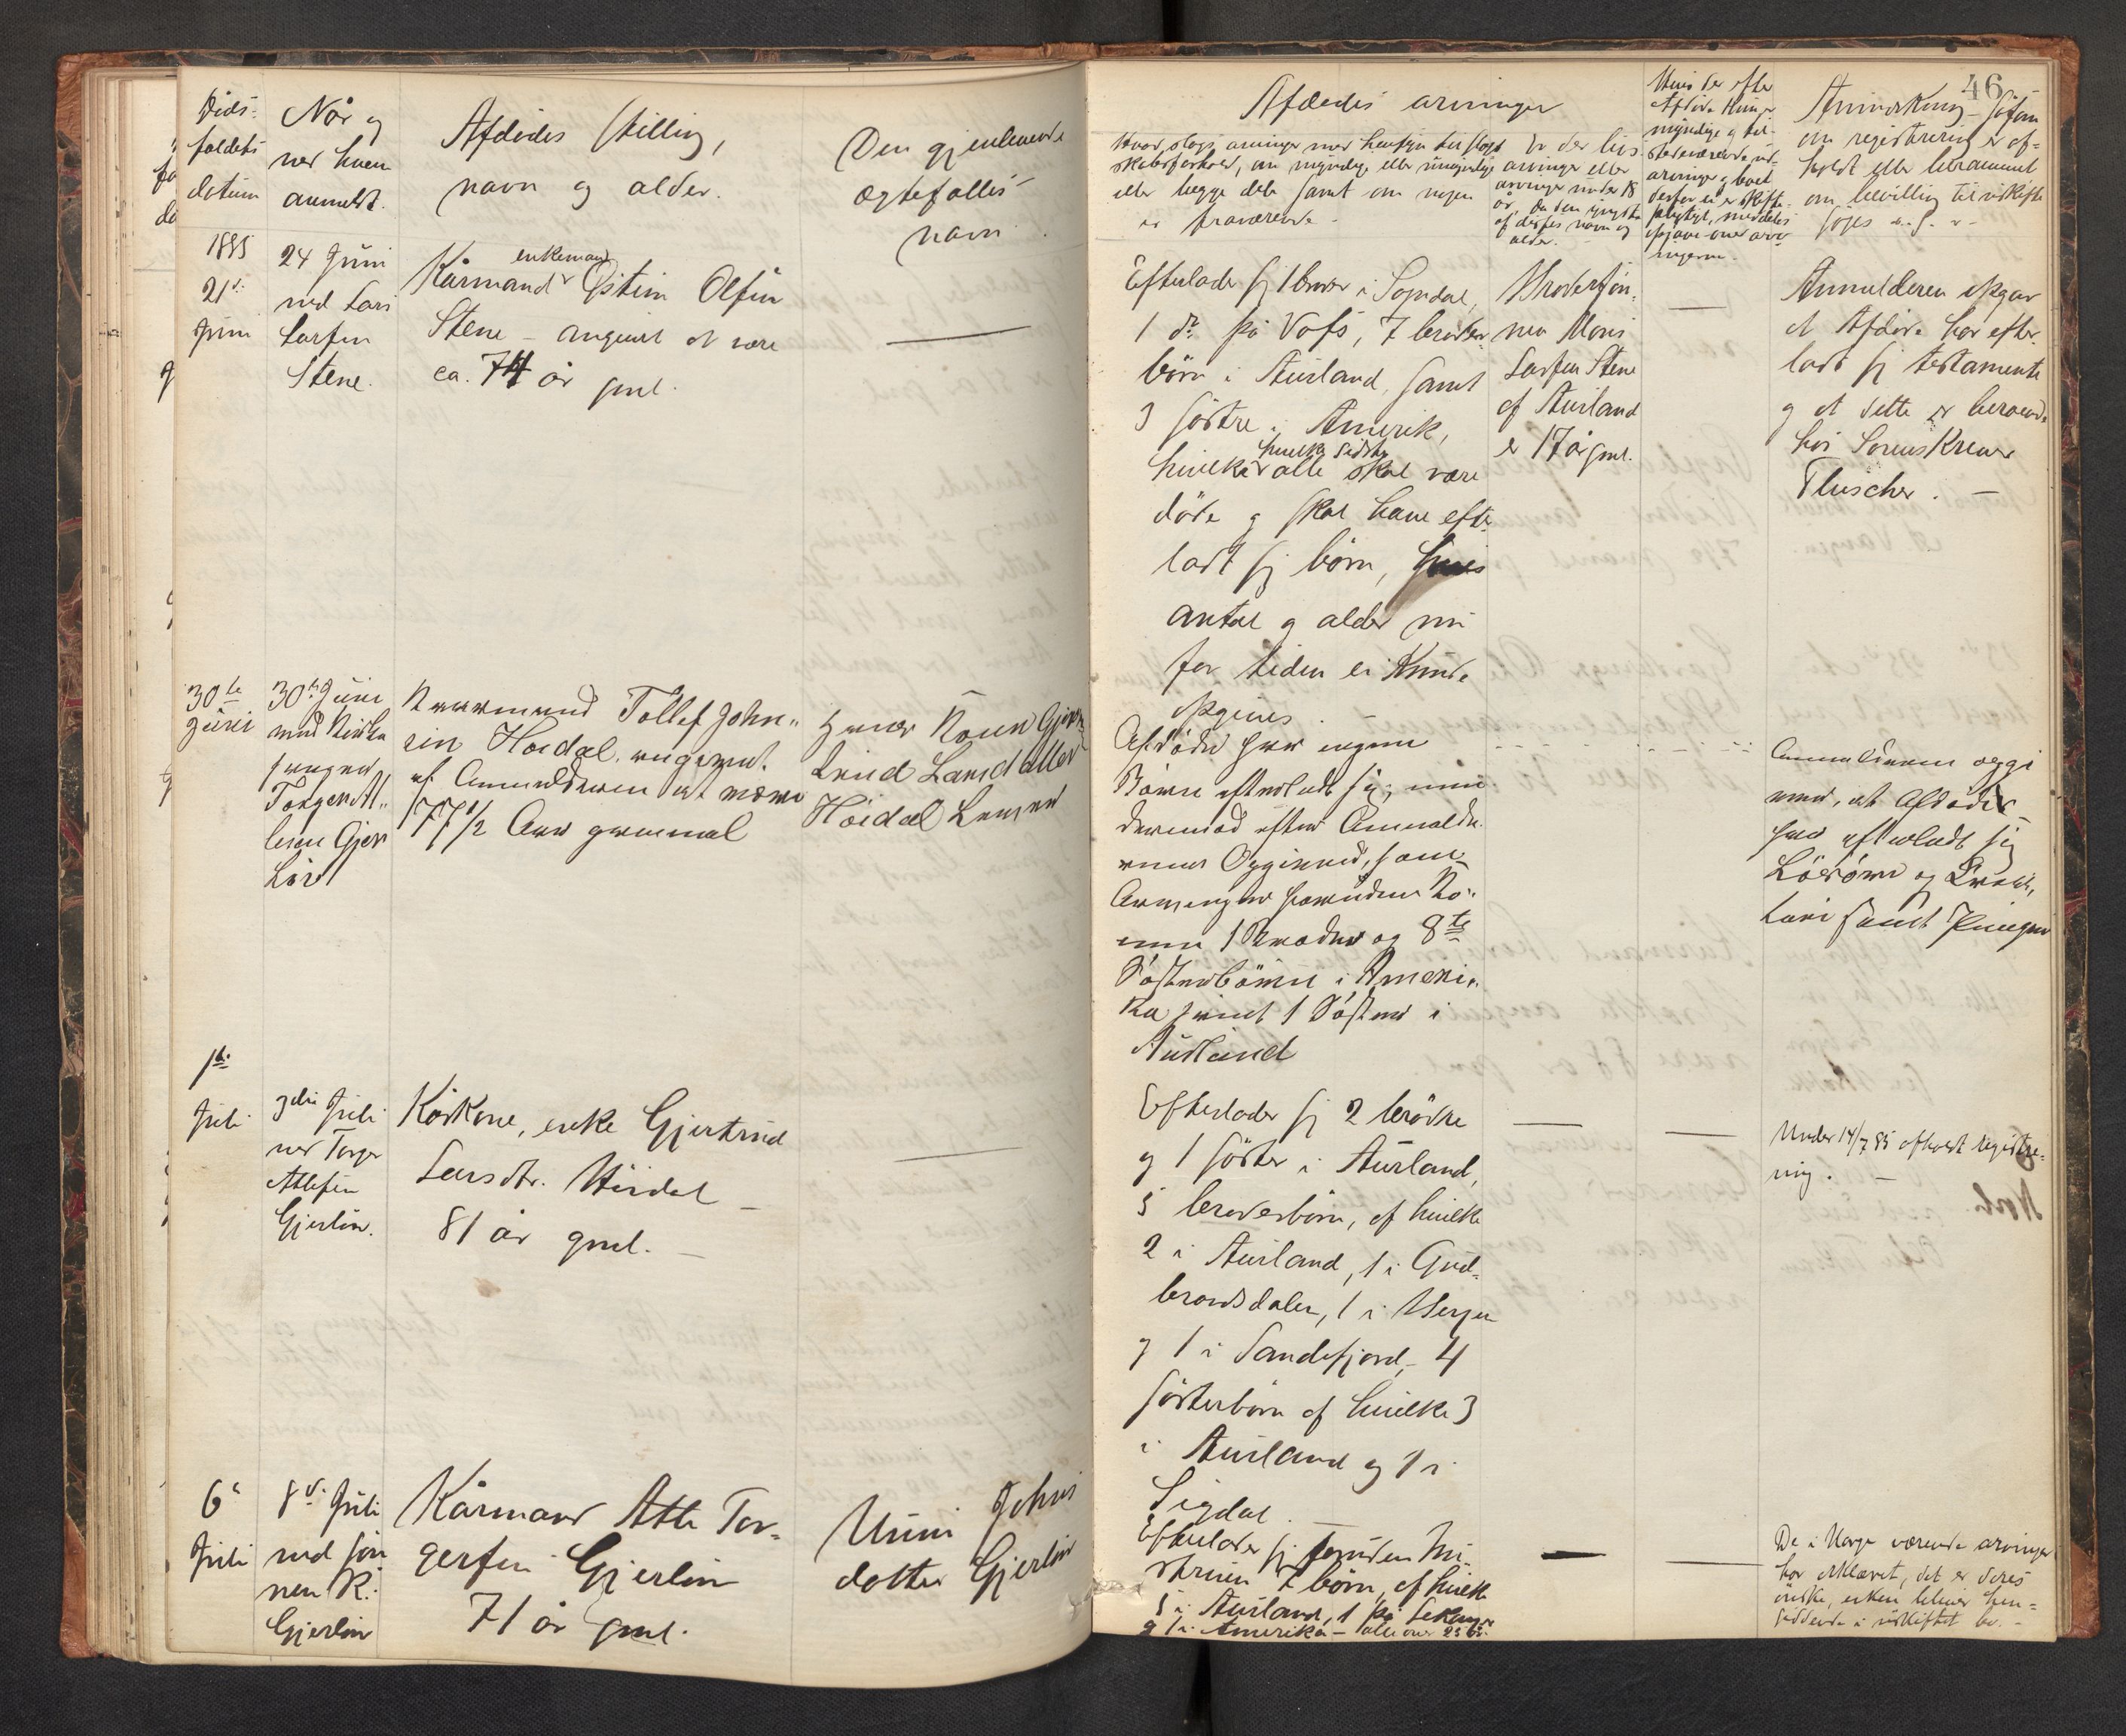 46
Døds-
faldets
datum
Når og
ved hvem
anmeldt.
Afdødes stilling,
navn og alder.
Den gjenlevende
ægtefælles
navn.
Afdødes arvinger
Hvad slags arvinger med hensyn til slægt
skabsforhold, om myndige eller umyndige
eller begge dele samt om nogen
er fraværende.
Er der livs-
arvinger eller
arvinger under 18
år, da den yngste
af disses navn og
alder.
Hvis der efter
Afdøde kun er
myndige og til-
stedeværende
arvinger og boet
derfor ei er skifte-
pligtigt, meddeles
opgave over arv-
ingerne.
Anmerkning såsom
om registrering er af-
holdt eller berammet
om bevilling til uskifte
søges o. s. v.
1885
21de
Juni
24 Juni
ved Lars
Larsen
Stene.
enkemand
Kårmand Østein Olsen
Stene – angivet at være
ca. 74 år gml.
Efterlader sig 1 broder i Sogndal,
1 do. på Voss, 7 broder-
børn i Aurland, samt
3 søstre i Amerik,
hvilke sidste
hvilke alle skal være
døde og skal have efter-
ladt sig børn, hvis
antal og alder nu
for tiden ei kunde
opgives. –
Brodersøn-
nen Mons
Larsen Stene
af Aurland
er 17 år gml.
Anmelderen opgav
at Afdøde har efter-
ladt sig testamente
og at dette er beroende
hos Sorenskriver
Fleischer. –
30te
Juni
30te Juni
ved Kirke
sanger
Torger At-
lesen Gjer
løv
Kaarmand Tollef John-
sen Høidal, angivet
af Anmelderen at være
77 1/2 Aar gammel
Hans Kone Gjer
trud Larsdatter
Høidal Lever
Afdøde har ingen
Børn efterladt sig; men
derimod efter Anmelde-
rens Opgivend, som
Arvinger foruden Ko-
nen 1 Broder og 8te
Søsterbørn i Ameri-
ka samt 1 Søster i
Aurland
Anmelderen opgi
ver, at Afdøde
har efterladt sig
Løsøre og Krea-
turer samt Penger
1ste
Juli
3die Juli
ved Torger
Atlesen
Gjerløv.
Kårkone, enke Gjertrud
Larsdtr. Høidal –
81 år gml. –
Efterlader sig 2 brødre
og 1 søster i Aurland,
5 broderbørn, af hvilke
2 i Aurland, 1 i Gud-
brandsdalen, 1 i Bergen
og 1 i Sandefjord, 4
søsterbørn af hvilke 3
i Aurland og 1 i
Sigdal. –
Under 14/7 85 afholdt registre-
ring. –
6te
Juli
8de Juli
ved søn
nen K.
Gjerløv
Kårmand Atle Tor-
gersen Gjerløv
71 år gml.
Unni Johns
datter Gjerløv
Efterlader sig foruden hu-
struen 7 børn, af hvilke
5 i Aurland, 1 på Lekanger
og 1 i Amerika – alle over 25 år.
De i Norge værende arvinger
har erklæret, det er deres
ønske, enken bliver hen-
siddende i uskiftet bo. –